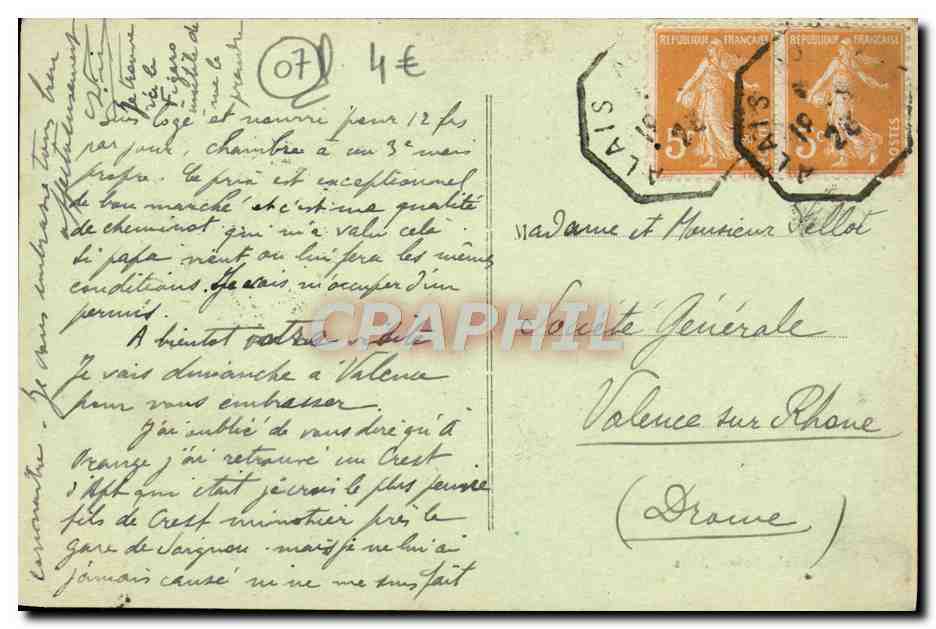 07
4€
suis logé et nourri pour 12 frs
par jour, chambre à un 3e mais
propre. Le prix est exceptionnel
de bon marché et c'est ma qualité
de cheminot qui m'a valu cela.
Si papa vient on lui fera les mêmes
conditions. Je vais m'occuper d'un
permis.
A bientôt votre visite
Je vais dimanche à Valence
pour vous embrasser.
J'ai oublié de vous dire qu'à
Orange j'ai retrouvé un Crest
d'Apt qui était je crois le plus jeune
fils de Crest minotier près la
gare de mais je ne lui ai
jamais causé ni ne me suis fait
connaître. Je vous embrasse tous bien
affectueusement
Je trouve
ici le
Figaro
inutile de
me le
prendre
REPUBLIQUE FRANÇAISE
5c
REPUBLIQUE FRANÇAISE
5c
POSTES
ALAIS
16
22
ALAIS
16
22
Madame et Monsieur
Société Générale
Valence sur Rhone
(Drome)
CRAPHIL